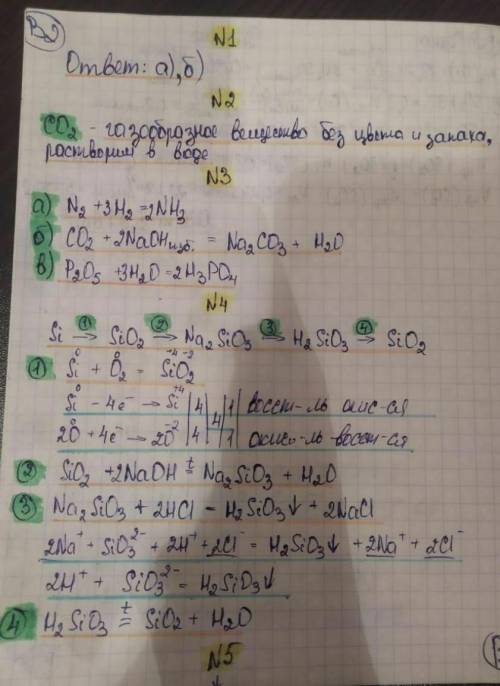 В2
N1
Ответ: а), б)
N2
CO₂ - газообразное вещество без цвета и запаха,
растворим в воде
N3
а) N₂ + 3H₂ = 2NH₃
б) CO₂ + 2NaOH изб. = Na₂CO₃ + H₂O
в) P₂O₅ + 3H₂O = 2H₃PO₄
N4
Si →① SiO₂ →② Na₂SiO₃ →③ H₂SiO₃ →④ SiO₂
① Si⁰ + O₂⁰ = Si⁺⁴O₂⁻²
Si⁰ - 4e⁻ → Si⁺⁴ | 4 | 4 | 1 | восст-ль окис-ся
2O⁰ + 4e⁻ → 2O⁻² | 4 | 1 | окис-ль восст-ся
② SiO₂ + 2NaOH =ᵗ Na₂SiO₃ + H₂O
③ Na₂SiO₃ + 2HCl = H₂SiO₃↓ + 2NaCl
2Na⁺ + SiO₃²⁻ + 2H⁺ + 2Cl⁻ = H₂SiO₃↓ + 2Na⁺ + 2Cl⁻
2H⁺ + SiO₃²⁻ = H₂SiO₃↓
④ H₂SiO₃ =ᵗ SiO₂ + H₂O
N5